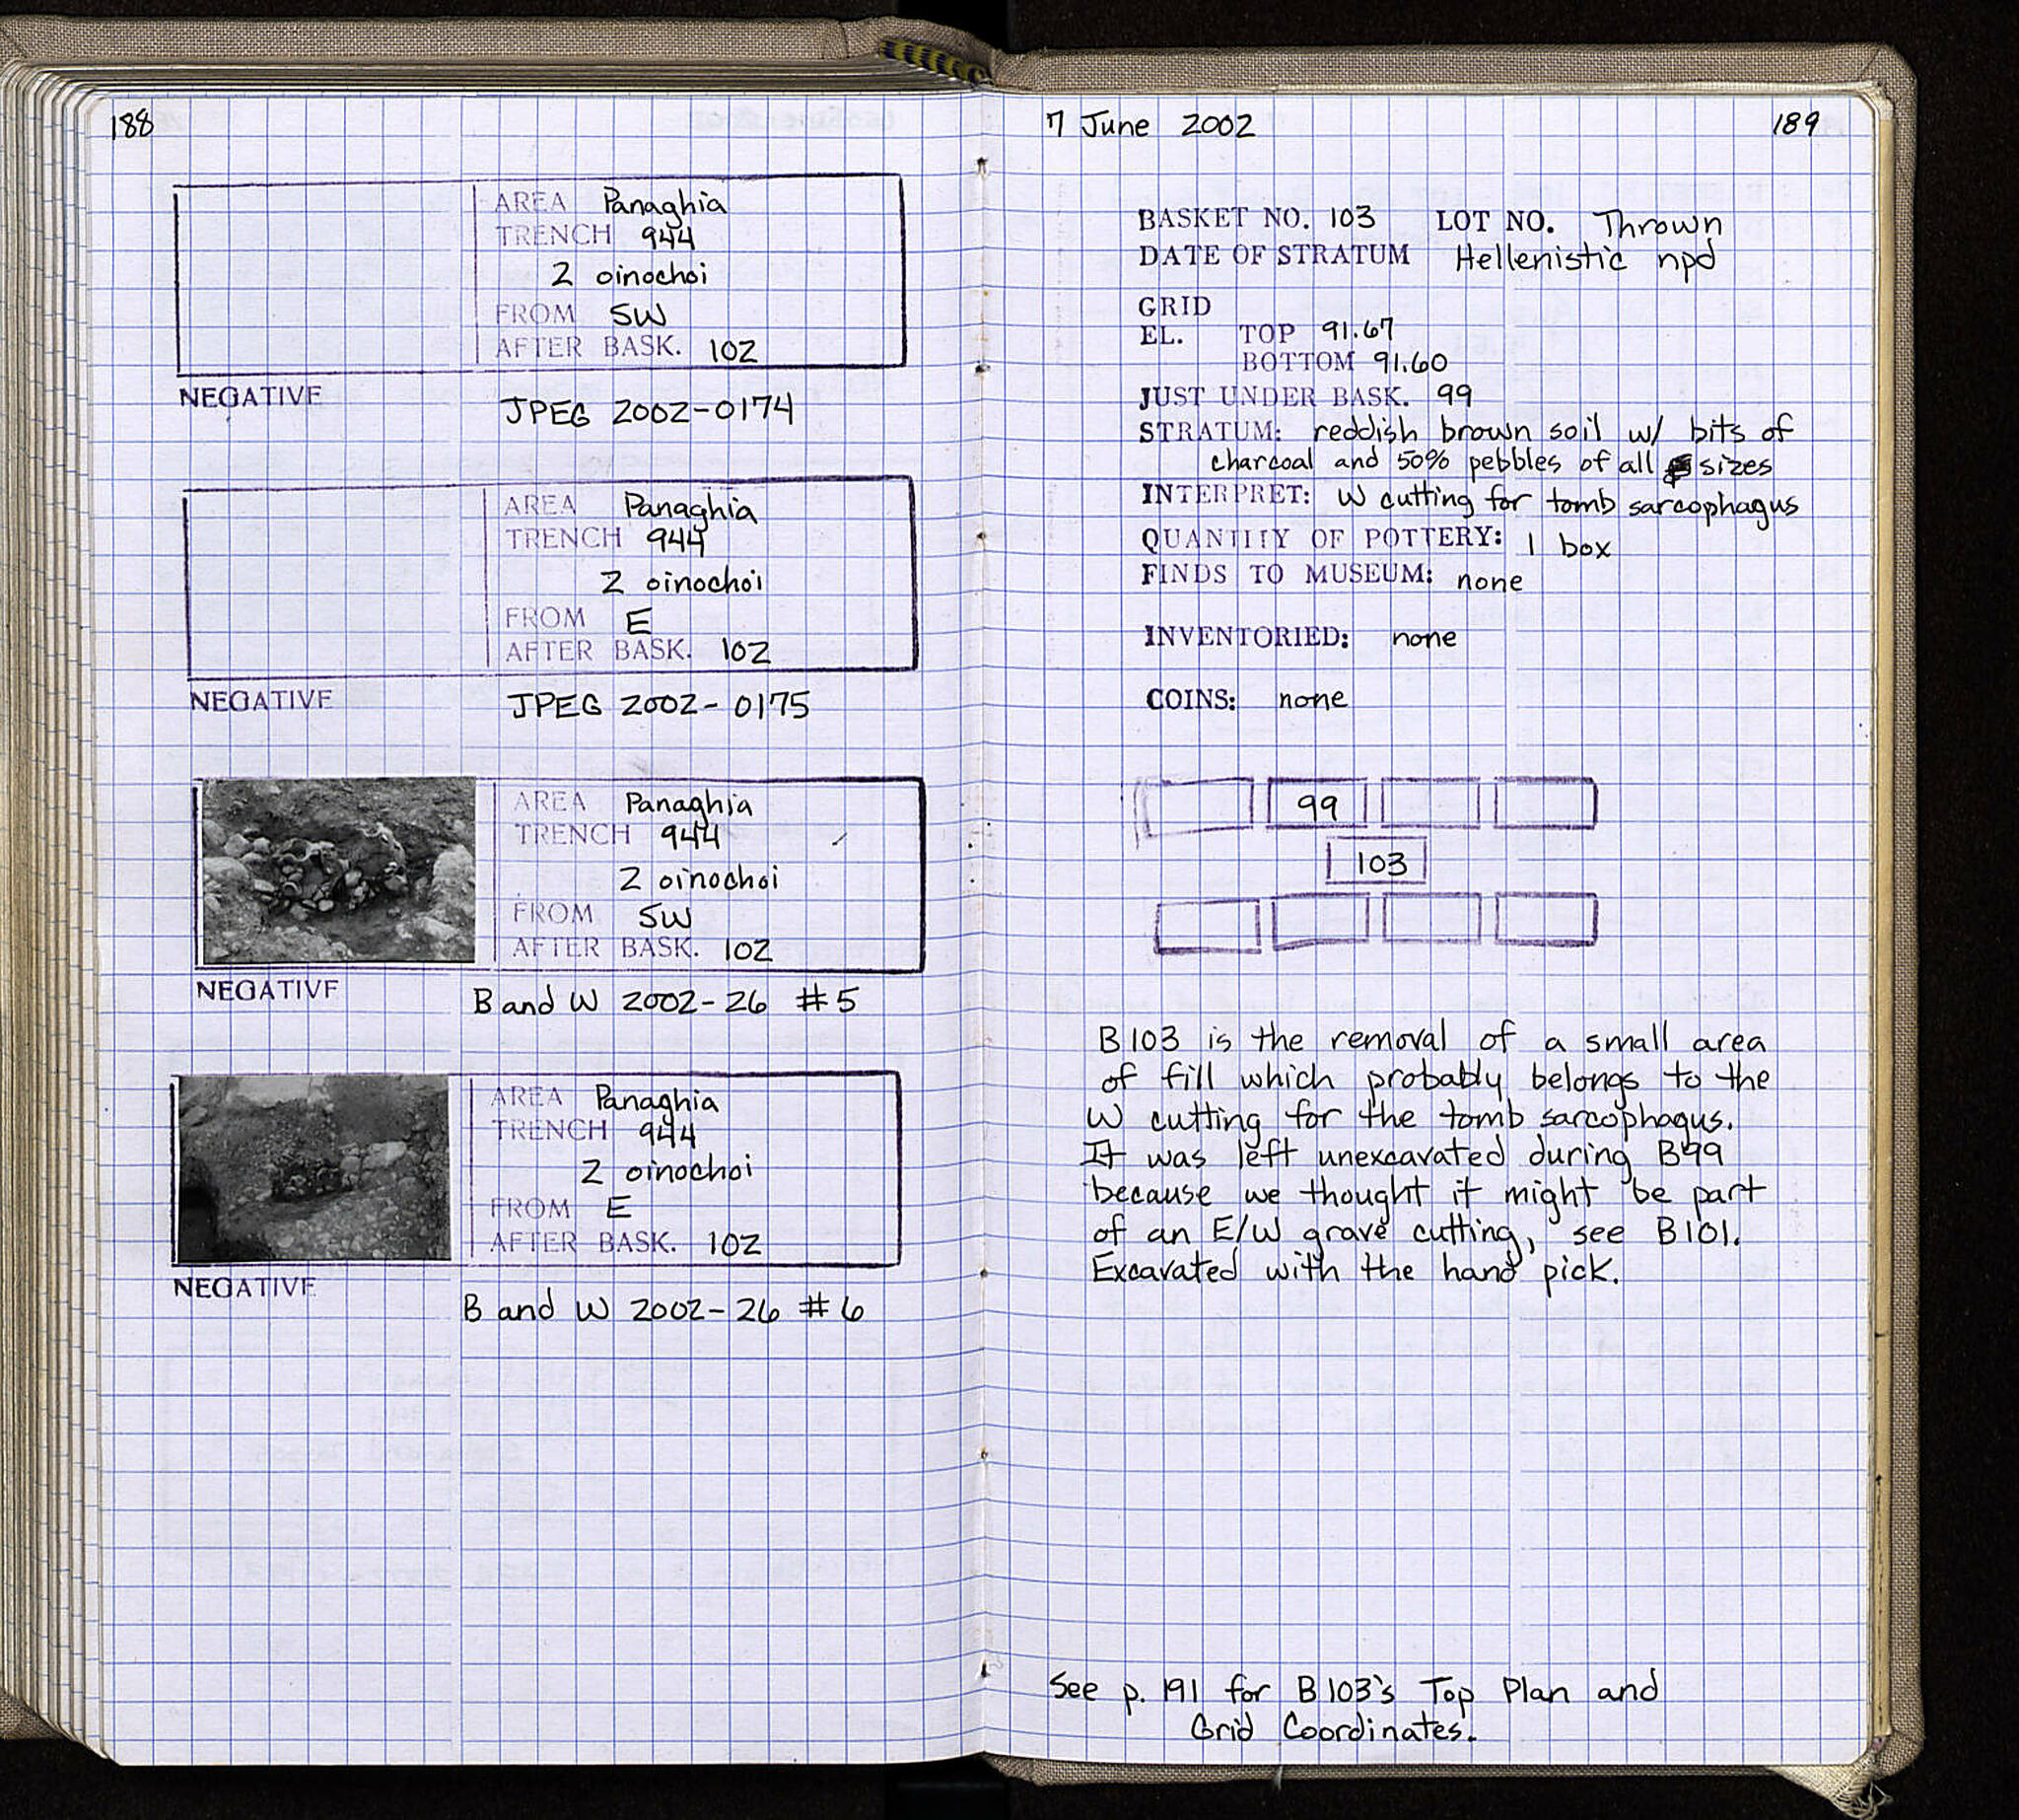 188
AREA Panaghia
TRENCH 944
2 oinochoi
FROM SW
AFTER BASK. 102
NEGATIVE
JPEG 2002-0174
AREA Panaghia
TRENCH 944
2 oinochoi
FROM E
AFTER BASK. 102
NEGATIVE
JPEG 2002-0175
AREA Panaghia
TRENCH 944
2 oinochoi
FROM SW
AFTER BASK. 102
NEGATIVE
B and W 2002-26 #5
AREA Panaghia
TRENCH 944
2 oinochoi
FROM E
AFTER BASK. 102
NEGATIVE
B and W 2002-26 #6
7 June 2002 189
BASKET NO. 103 LOT NO. Thrown
DATE OF STRATUM Hellenistic npd
GRID
EL. TOP 91.67
BOTTOM 91.60
JUST UNDER BASK. 99
STRATUM: reddish brown soil w/ bits of
charcoal and 50% pebbles of all sizes
INTERPRET: W cutting for tomb sarcophagus
QUANTITY OF POTTERY: 1 box
FINDS TO MUSEUM: none
INVENTORIED: none
COINS: none
99
103
B103 is the removal of a small area
of fill which probably belongs to the
W cutting for the tomb sarcophagus.
It was left unexcavated during B99
because we thought it might be part
of an E/W grave cutting, see B101.
Excavated with the hand pick.
See p. 191 for B103's Top Plan and
Grid Coordinates.